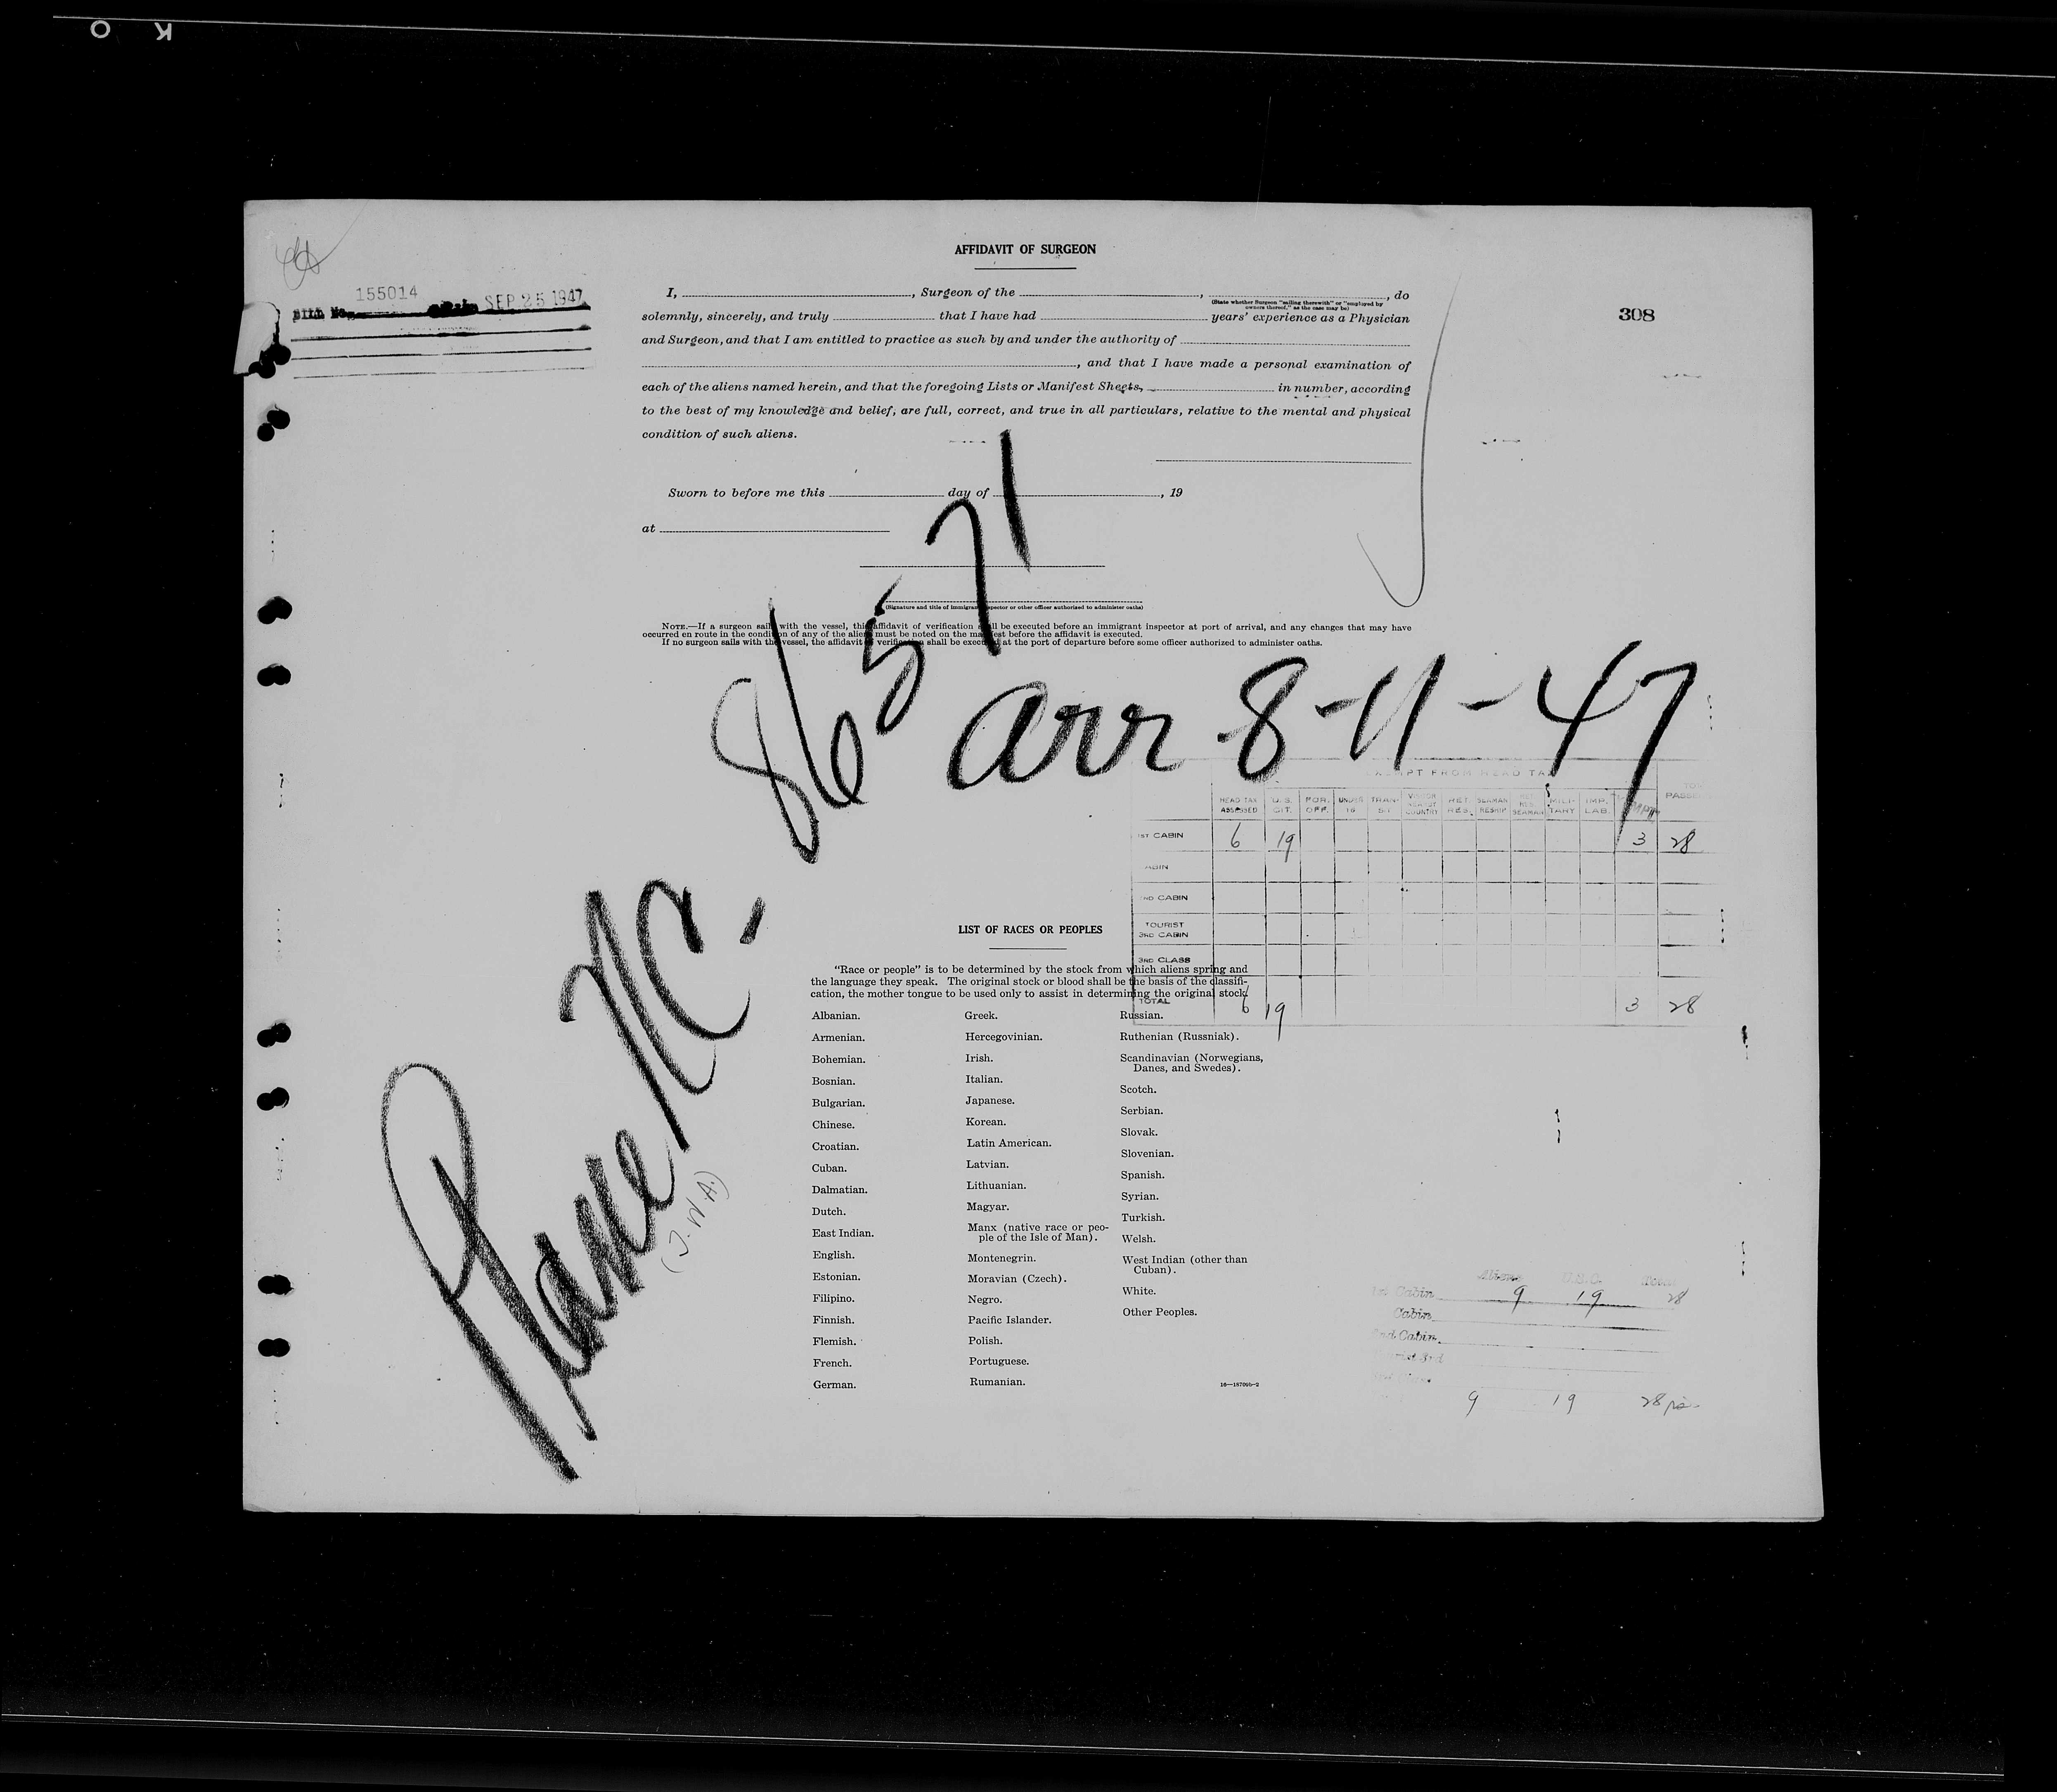 O K
AFFIDAVIT OF SURGEON
155014
BILL No. SEP 25 1947
308
I, , Surgeon of the , , do
(State whether Surgeon "sailing therewith" or "employed by owners thereof," as the case may be)
solemnly, sincerely, and truly that I have had years' experience as a Physician
and Surgeon, and that I am entitled to practice as such by and under the authority of
, and that I have made a personal examination of
each of the aliens named herein, and that the foregoing Lists or Manifest Sheets, in number, according
to the best of my knowledge and belief, are full, correct, and true in all particulars, relative to the mental and physical
condition of such aliens.
Sworn to before me this day of , 19
at
(Signature and title of immigrant inspector or other officer authorized to administer oaths)
NOTE.—If a surgeon sails with the vessel, this affidavit of verification shall be executed before an immigrant inspector at port of arrival, and any changes that may have
occurred en route in the condition of any of the aliens must be noted on the manifest before the affidavit is executed.
If no surgeon sails with the vessel, the affidavit of verification shall be executed at the port of departure before some officer authorized to administer oaths.
Plane NC- 86571
(T.W.A.)
arr 8-11-47
EXEMPT FROM HEAD TAX
HEAD TAX ASSESSED U.S. CIT. FOR. OFF. UNDER 16 TRANSIT RET. RES. SEAMAN RESHIP MILITARY IMP. LAB.
1ST CABIN 6 19 3 28
CABIN
2ND CABIN
TOURIST
3RD CABIN
3RD CLASS
TOTAL 6 19 3 28
LIST OF RACES OR PEOPLES
"Race or people" is to be determined by the stock from which aliens spring and
the language they speak. The original stock or blood shall be the basis of the classifi-
cation, the mother tongue to be used only to assist in determining the original stock.
Albanian.
Armenian.
Bohemian.
Bosnian.
Bulgarian.
Chinese.
Croatian.
Cuban.
Dalmatian.
Dutch.
East Indian.
English.
Estonian.
Filipino.
Finnish.
Flemish.
French.
German.
Greek.
Hercegovinian.
Irish.
Italian.
Japanese.
Korean.
Latin American.
Latvian.
Lithuanian.
Magyar.
Manx (native race or peo-
ple of the Isle of Man).
Montenegrin.
Moravian (Czech).
Negro.
Pacific Islander.
Polish.
Portuguese.
Rumanian.
Russian.
Ruthenian (Russniak).
Scandinavian (Norwegians,
Danes, and Swedes).
Scotch.
Serbian.
Slovak.
Slovenian.
Spanish.
Syrian.
Turkish.
Welsh.
West Indian (other than
Cuban).
White.
Other Peoples.
16—18709b-2
Aliens U.S.C. Total
1st Cabin 9 19 28
Cabin
2nd Cabin
9 19 28